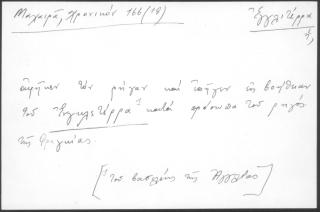 Μαχαιρᾶ, Χρονικόν 166 (18)
Ἐγγλιτέρρα
ἀφῆκεν τὸν ρήγαν καὶ ἐπῆγεν εἰς βοήθειαν
τοῦ Ἐγκλετέρρα¹ κατὰ πρόσωπα τοῦ ρηγὸς
τῆς Φραγκίας.
[¹ τοῦ βασιλέως τῆς Ἀγγλίας]